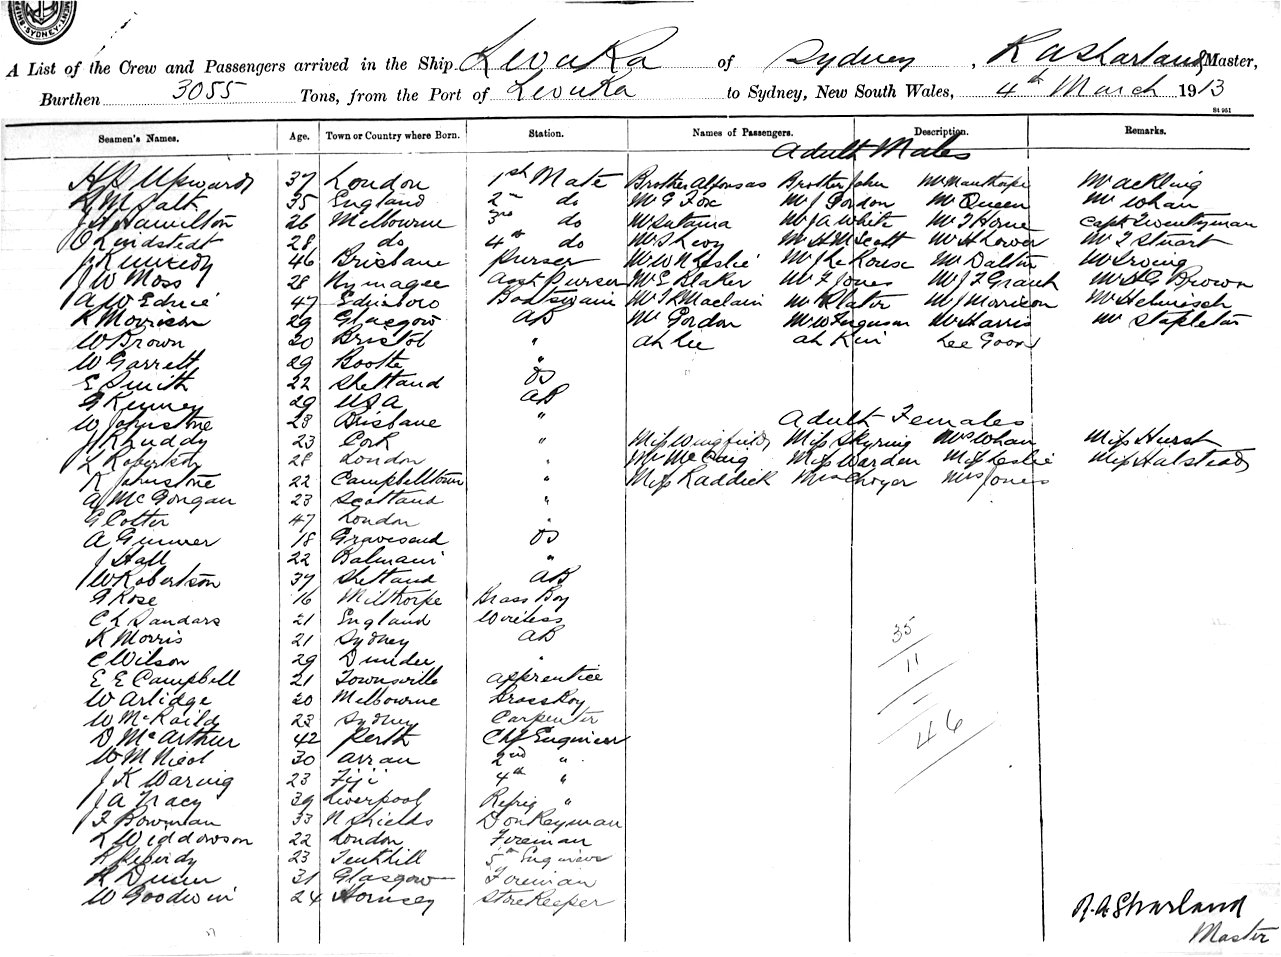 A List of the Crew and Passengers arrived in the Ship Levuka of Sydney, R A Sharland Master,
Burthen 3055 Tons, from the Port of Levuka to Sydney, New South Wales, 4th March 1913
St 951
Seamen's Names. Age. Town or Country where Born. Station. Names of Passengers. Description. Remarks.
Adult Males
37 London 1st Mate Brother Alfonsas Brother John Mr Manthorpe Mr Ackling
35 England 2nd do Mr G Fox Mr J Gordon Mr Queen Mr Whan
J A Hamilton 26 Melbourne 3rd do Mr A White Mr T Horne Capt Twentyman
O Lindstedt 28 do 4th do Mr S Levy Mr H M Scott Mr H Lower Mr T Stuart
J Kennedy 46 Brisbane Purser Mr W N Leslie Mr Dalton Mr Irving
J W Moss 28 Nymagee Asst Purser Mr E Blaker Mr F Jones Mr J F Grant Brown
A W Ednie 47 Boatswain Mr Slator Mr J Morrison
K Morrison 29 Glasgow AB Mr Gordon Mr W Ferguson Mr Harris Mr Stapleton
W Brown 20 Bristol " Ah Lee Lee Goon
W Garrett 29 Bootle "
E Smith 22 Shetland OS
G Kenney 29 USA AB
W Johnstone 23 Brisbane "
Adult Females
23 Cork " Miss Wingfield Miss Skyring Mrs Whan Miss Hurst
L Robertson 28 London " McCaig Miss Warden Miss Leslie Miss Halstead
K Johnstone 22 Campbelltown " Miss Raddick Mrs Jones
A McGongan 23 Scotland "
G Cotter 47 London "
A Gunner 18 Gravesend OS
J Hall 22 Balmain "
J W Robertson 37 Shetland AB
G Rose 16 Milthorpe Brass Boy
C L Sandars 21 England Wireless
K Morris 21 Sydney AB
C Wilson 29 Dundee "
E E Campbell 21 Townsville Apprentice
W Arlidge 20 Melbourne Brass Boy
W McKaild 23 Sydney Carpenter
D McArthur 42 Perth Chf Engineer
W M Nicol 30 Arran 2nd "
J K Waring 23 Fiji 4th "
J A Tracy 39 Liverpool Refrig "
F Bowman 33 N Shields Donkeyman
L Widdowson 22 London Fireman
23 5th Engineer
31 Glasgow Fireman
W Goodwin 24 Hornsey Storekeeper
35
11
46
R. A. Sharland
Master